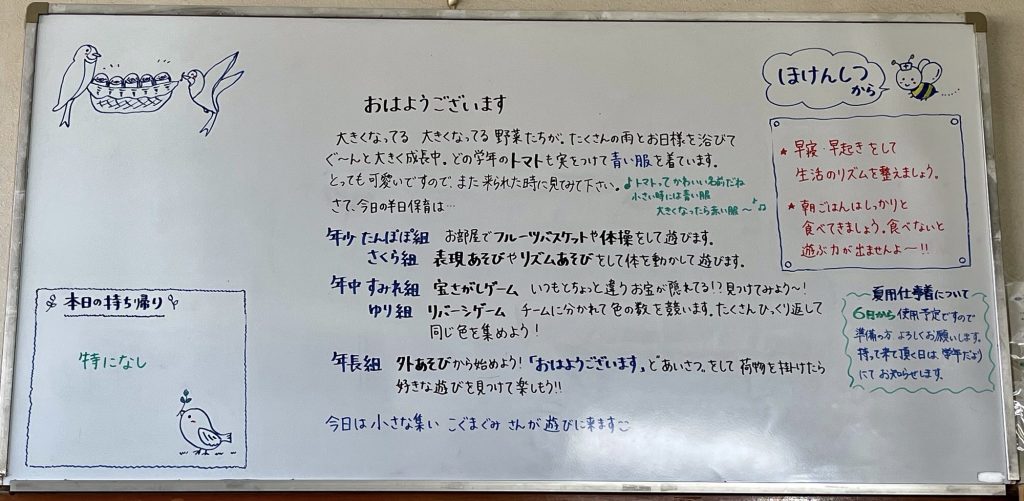 おはようございます
大きくなってる 大きくなってる 野菜たちが、たくさんの雨とお日様を浴びて
ぐ〜んと大きく成長中。どの学年のトマトも実をつけて青い服を着ています。
とっても可愛いですので、また来られた時に見てみて下さい。
♪トマトってかわいい名前だね
小さい時には青い服
大きくなったら赤い服〜♪♫
さて、今日の半日保育は…
年少 たんぽぽ組 お部屋でフルーツバスケットや体操をして遊びます。
さくら組 表現あそびやリズムあそびをして体を動かして遊びます。
年中 すみれ組 宝さがしゲーム いつもとちょっと違うお宝が隠れてる!?見つけてみよう〜!
ゆり組 リバーシゲーム チームに分かれて色の数を競います。たくさんひっくり返して
同じ色を集めよう!
年長組 外あそびから始めよう!「おはようございます。」とあいさつをして荷物を掛けたら
好きな遊びを見つけて楽しもう!!
今日は小さな集い こぐまぐみさんが遊びに来ます
本日の持ち帰り
特になし
ほけんしつ
から
★早寝・早起きをして
生活のリズムを整えましょう。
★朝ごはんはしっかりと
食べてきましょう。食べないと
遊ぶ力が出ませんよー!!
夏用仕事着について
6月から使用予定ですので
準備の方よろしくお願いします。
持って来て頂く日は、学年だより
にてお知らせします。